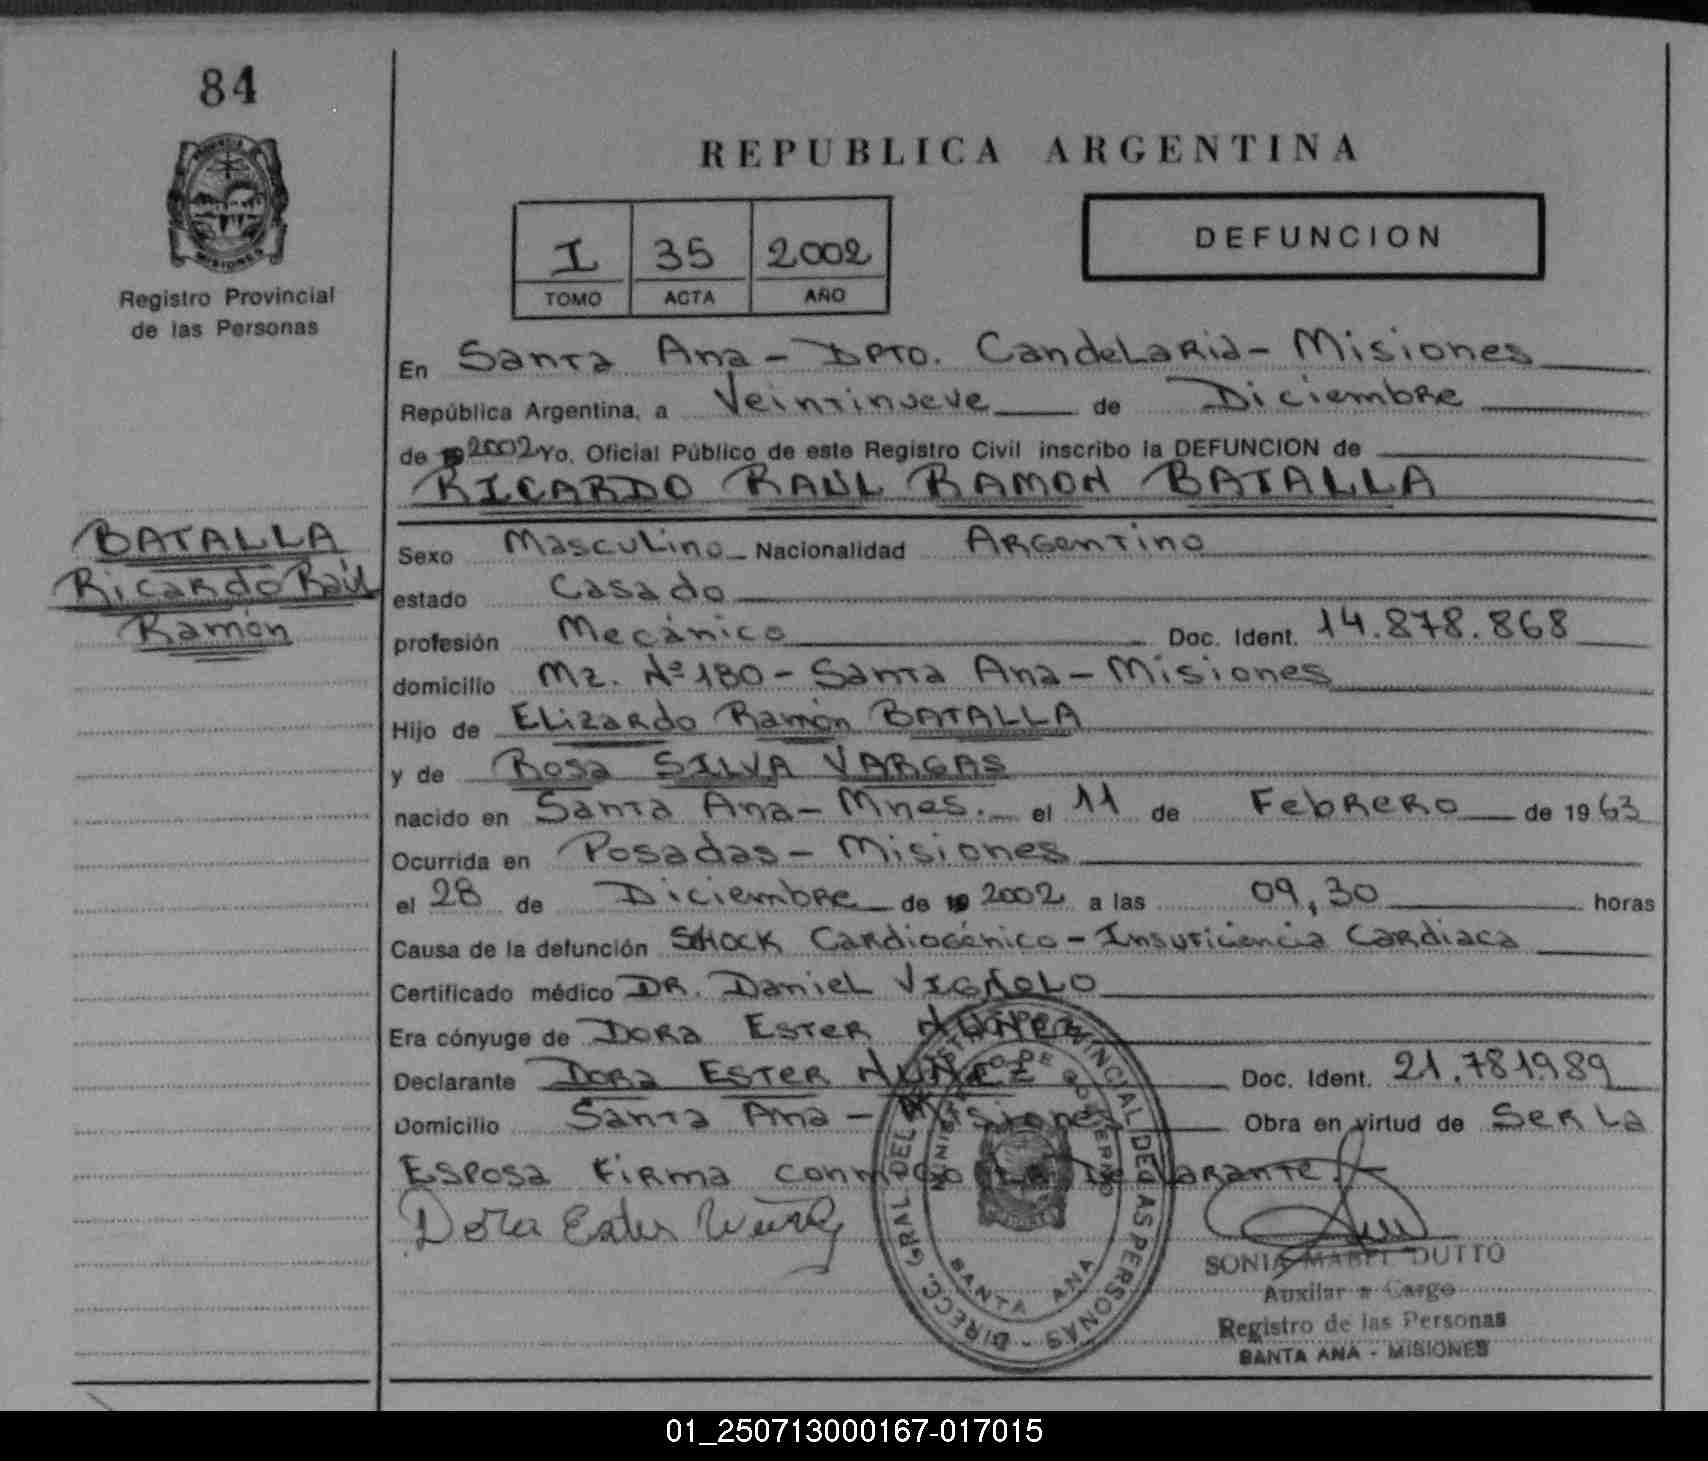 84
Registro Provincial
de las Personas
REPUBLICA ARGENTINA
I 35 2002
TOMO ACTA AÑO
DEFUNCION
En Santa Ana - Dpto. Candelaria - Misiones
República Argentina, a Veintinueve de Diciembre
de 19 2002 Yo, Oficial Público de este Registro Civil inscribo la DEFUNCION de
RICARDO RAÚL RAMON BATALLA
BATALLA
Ricardo Raúl
Ramón
Sexo Masculino - Nacionalidad Argentino
estado Casado
profesión Mecánico Doc. Ident. 14.878.868
domicilio Mz. Nº 180 - Santa Ana - Misiones
Hijo de Elizardo Ramón BATALLA
y de Rosa SILVA VARGAS
nacido en Santa Ana - Mnes. el 11 de Febrero de 1963
Ocurrida en Posadas - Misiones
el 28 de Diciembre de 19 2002 a las 09,30 horas
Causa de la defunción SHOCK Cardiogénico - Insuficiencia Cardiaca
Certificado médico DR. Daniel VIGÑOLO
Era cónyuge de DORA ESTER NUÑEZ
Declarante DORA ESTER NUÑEZ Doc. Ident. 21.781.989
Domicilio Santa Ana - Misiones Obra en virtud de Ser La
Esposa Firma conmigo La Declarante.
Dora Ester Nuñez
DIRECC. GRAL. DEL REGISTRO PROVINCIAL DE LAS PERSONAS -
MINISTERIO DE GOBIERNO
SANTA ANA
SONIA MABEL DUTTO
Auxiliar a Cargo
Registro de las Personas
SANTA ANA - MISIONES
01_250713000167-017015